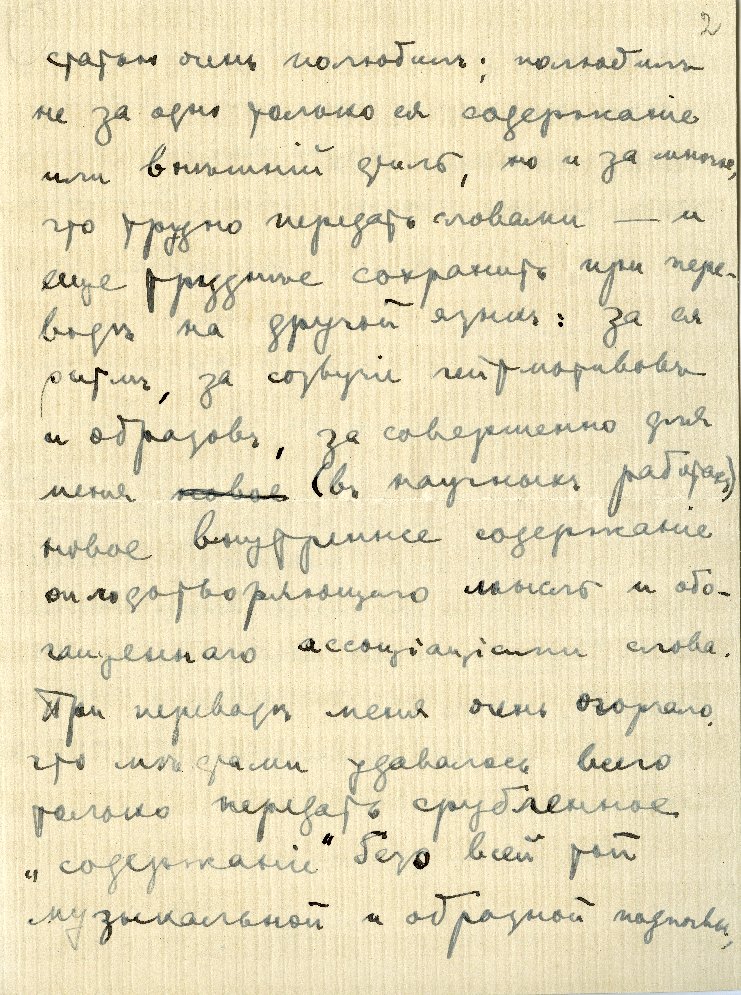 2
статью очень полюбилъ; полюбилъ
не за одно только ея содержаніе
или внѣшній стиль, но и за многое,
что трудно передать словами — и
еще труднѣе сохранить при пере-
водѣ на другой языкъ: за ея
ритмъ, за созвучіе лейтмотивовъ
и образовъ, за совершенно для
меня новое (въ научныхъ работахъ)
новое внутреннее содержаніе
оплодотворяющаго мысль и обо-
гащеннаго ассоціаціями слова.
При переводѣ меня очень огорчало,
что мѣстами удавалось всего
только передать срубленное
„содержаніе" безо всей той
музыкальной и образной подпочвы,